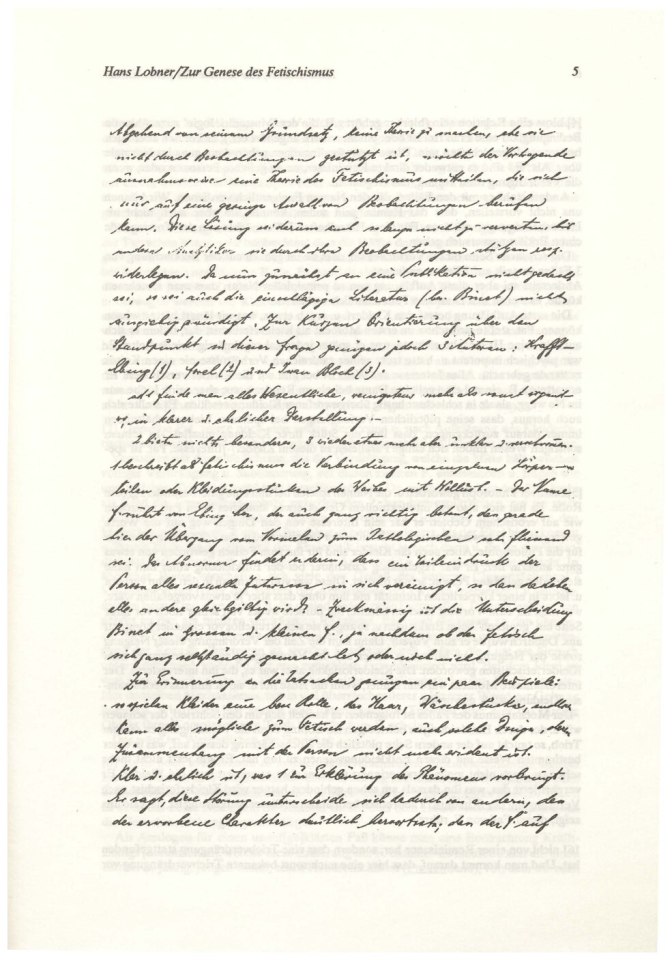 Hans Lobner/Zur Genese des Fetischismus 5
Abgehend von seinem Grundsatz, keine Theorie zu machen, ehe sie
nicht durch Beobachtungen gestützt ist, möchte der Vortragende
ausnahmsweise eine Theorie des Fetischismus mitteilen, die sich
nur auf eine geringe Anzahl von Beobachtungen berufen
kann. Diese Lösung wiederum auch solange nicht zu verwerten, bis
andere Analytiker sie durch ihre Beobachtungen stützen resp.
widerlegen. Da nun zunächst an eine Publikation nicht gedacht
sei, so sei auch die einschlägige Literatur (bes. Binet) nicht
ausgiebig gewürdigt. Zur kurzen Orientierung über den
Standpunkt in dieser Frage genügen jedoch 3 Autoren: Krafft-
Ebing (1), Forel (2) und Iwan Bloch (3).
finde man alles Wesentliche, wenigstens mehr als sonst
in klarer u. ehrlicher Darstellung. –
2 bietet nichts besonderes, 3 wieder etwas mehr aber unklar u. verschwommen.
1 beschreibt als Fetischismus die Verbindung von einzelnen Körper-
teilen oder Kleidungsstücken des Weibes mit Wollust. – Der Name
F. rührt von Ebing her, der auch ganz richtig betont, dass gerade
hier der Übergang vom Normalen zum Pathologischen sehr fliessend
sei. Das Abnorme findet er darin, dass ein Teileindruck der
Person alles sexuelle Interesse in sich vereinigt, so dass daneben
alles andere gleichgiltig wird. – Zweckmässig ist die Unterscheidung
Binet in grossen u. kleinen F., je nachdem ob der Fetisch
sich ganz selbständig gemacht hat oder noch nicht.
Zur Erinnerung an die Tatsachen genügen ein paar Beispiele:
so spielen Kleider eine bes. Rolle, das Haar, Wäschestücke,
kann alles mögliche zum Fetisch werden, auch solche Dinge, deren
Zusammenhang mit der Person nicht mehr evident ist.
Klar u. ehrlich ist, was 1 zur Erklärung des Phänomens vorbringt.
Er sagt, diese Störung unterscheide sich dadurch von andern, dass
der erworbene Charakter deutlich hervortrete, dass der F. auf